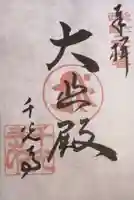 奉拝
大悲殿
千光寺